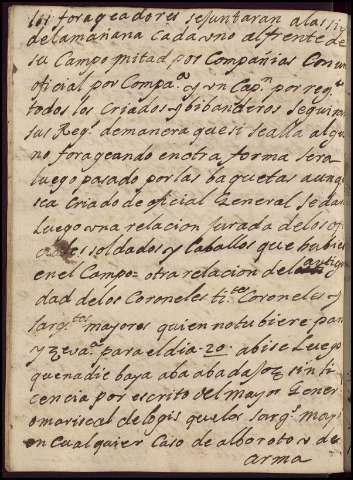 los forageadores se juntaran a las
de la mañana Cada vno al frente de
su Campo mitad por Compañias Con un
oficial por Compa.ª y vn Cap.n por reg.to
todos los Criados y bibanderos seguiran
sus Reg.s de manera que si se alla algu
no forageando en otra forma sera
luego pasado por las baquetas aunq
sea Criado de oficial General se dara
luego vna relacion jurada de los ofi
ciales soldados y Caballos que hubiere
en el Campo = otra relacion de la antigue
dad de los Coroneles ti.tes Coroneles y
sarg.tos mayores quien no tubiere pan
y para el dia 20 abise luego
que nadie baya a sin li
cencia por escrito del mayor Gener
o mariscal de logis que los sarg.s may
en Cualquier Caso de alboroto v de
arma